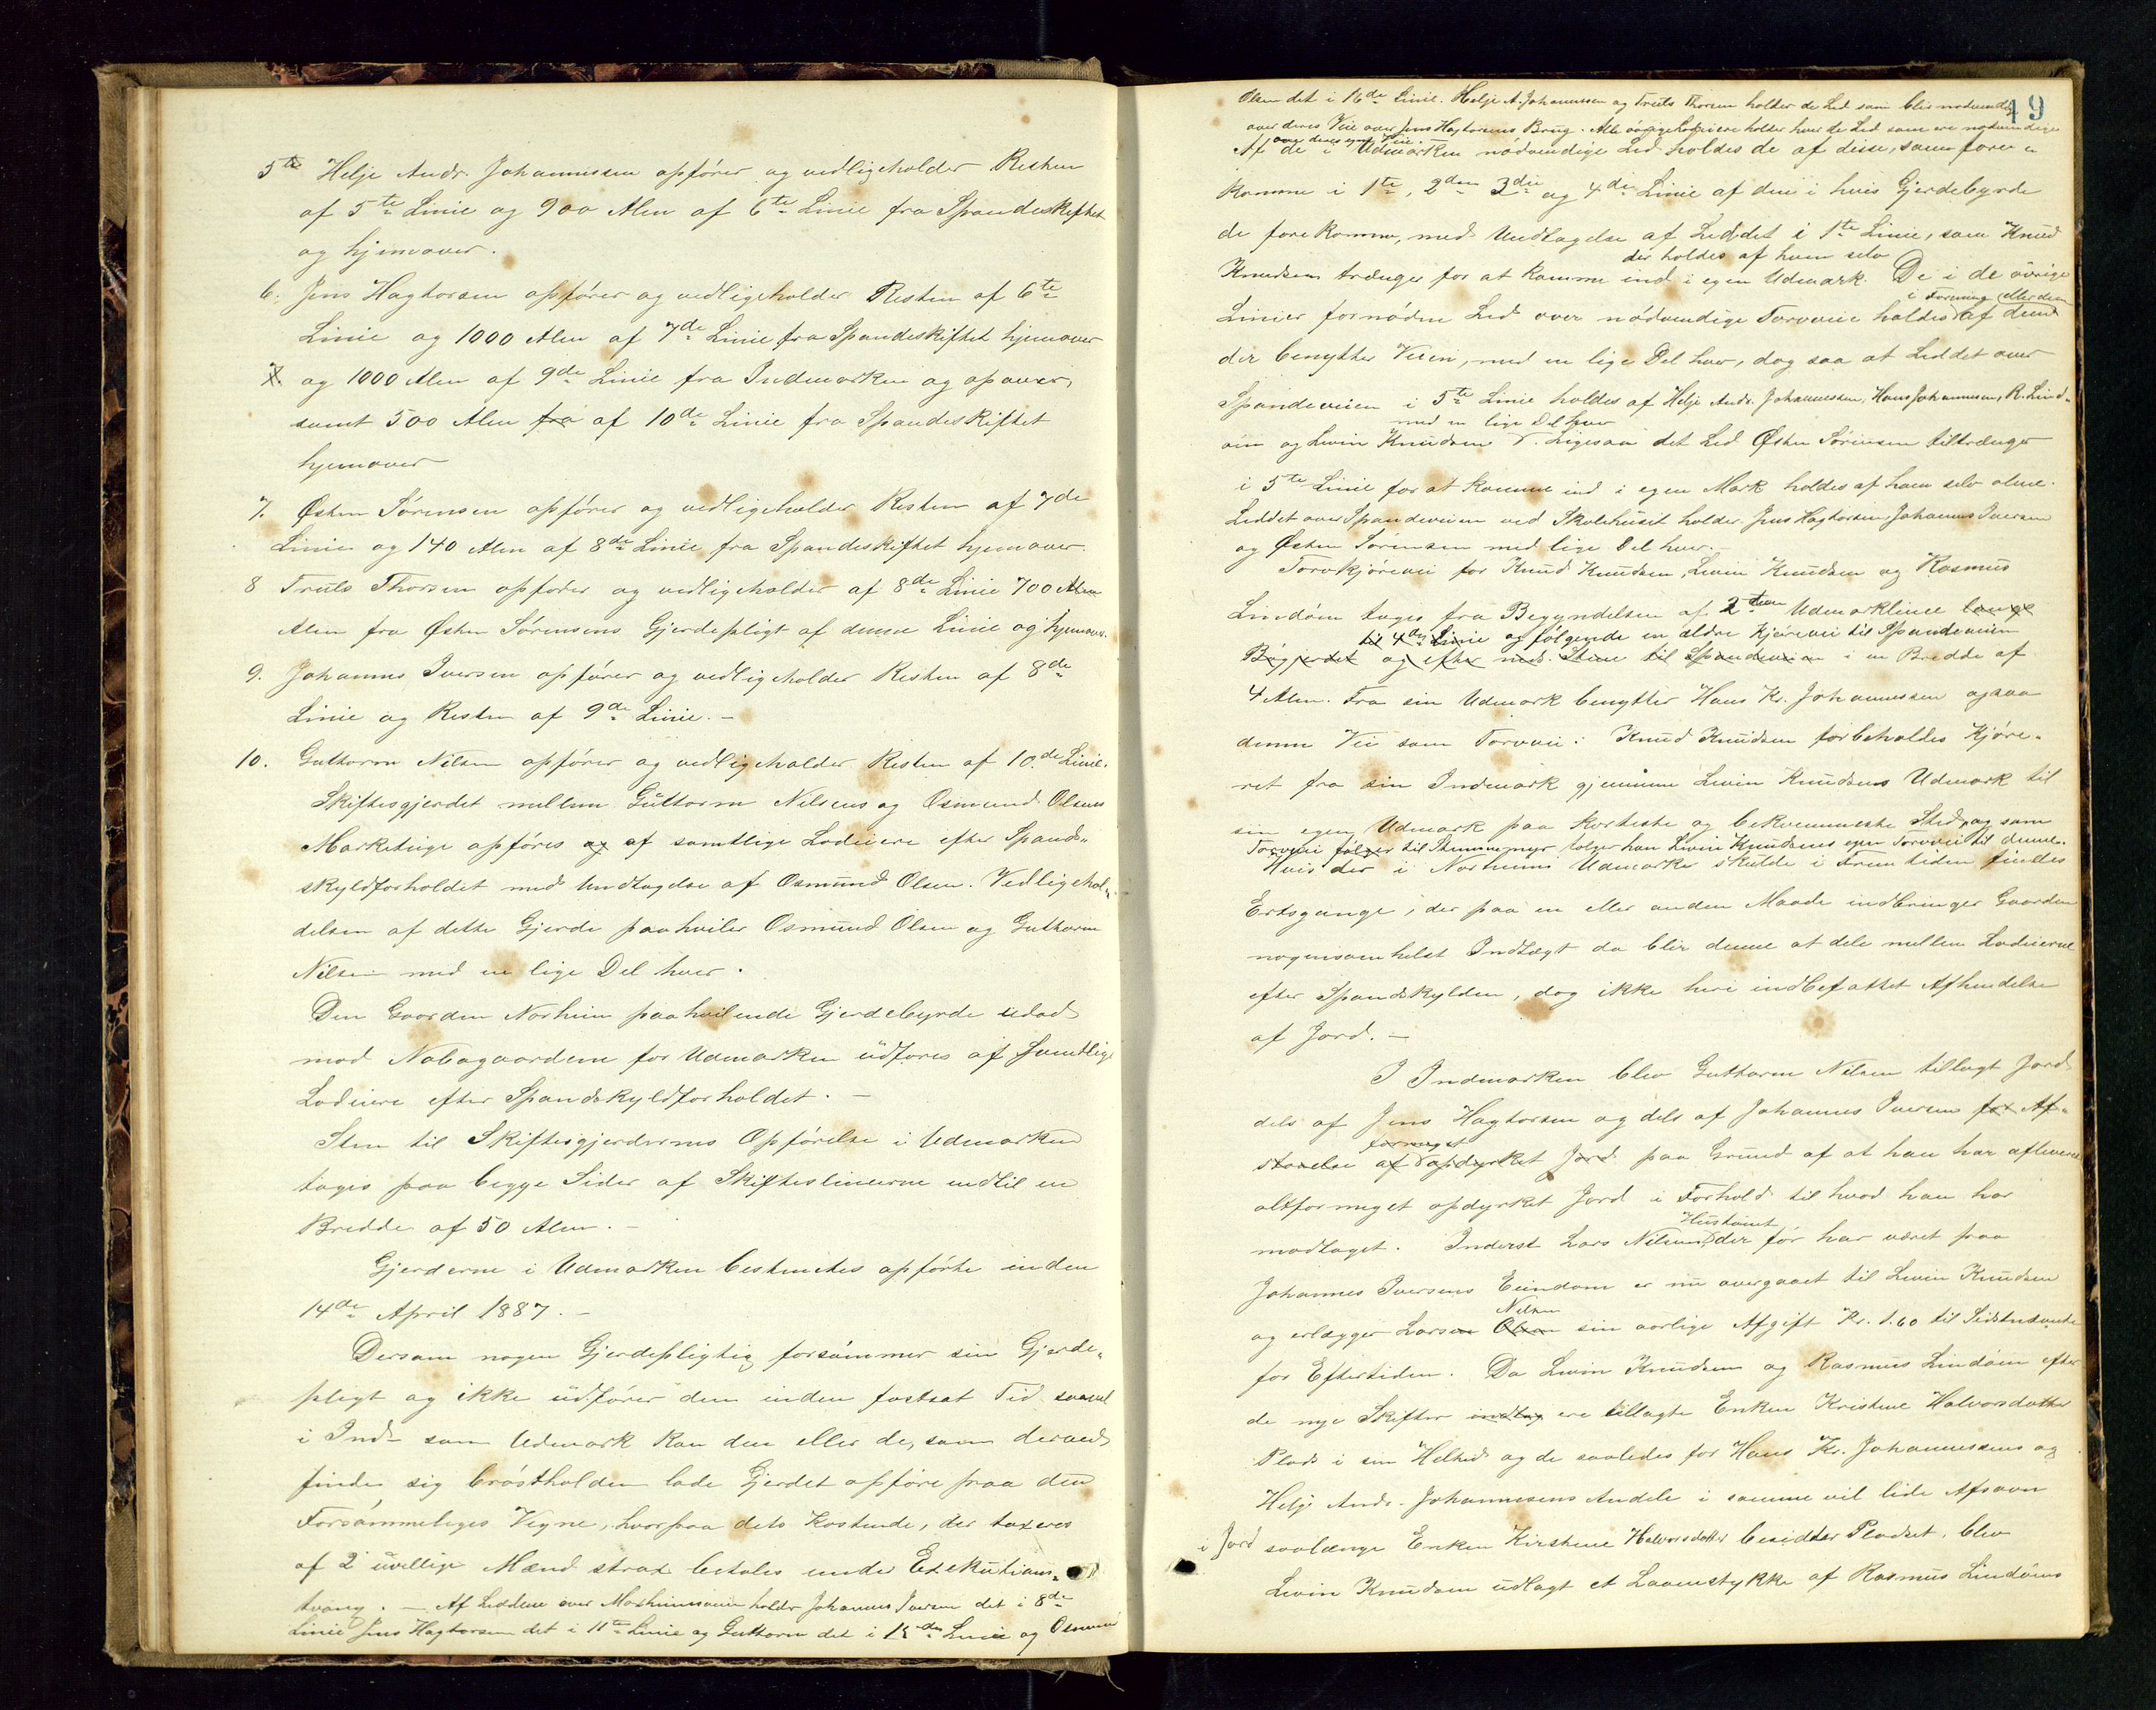 5te Helje Andr. Johannessen opfører og vedligeholder Resten
af 5te Linie og 900 Alen af 6te Linie fra Spandeskiftet
og hjemover.
6. Jens Hagtorsen opfører og vedligeholder Resten af 6te
Linie og 1000 Alen af 7de Linie fra Spandeskiftet hjemover
og 1000 Alen af 9de Linie fra Indmarken og opover,
samt 500 Alen fra af 10de Linie fra Spandeskiftet
hjemover
7. Østen Sørensen opfører og vedligeholder Resten af 7de
Linie og 140 Alen af 8de Linie fra Spandeskiftet hjemover.
8 Truls Thorsen opfører og vedligeholder af 8de Linie 700 Alen
Alen fra Østen Sørensens Gjerdepligt af denne Linie og hjemover.
9. Johannes Iversen opfører og vedligeholder Resten af 8de
Linie og Resten af 9de Linie. -
10. Guttorm Nilsen opfører og vedligeholder Resten af 10de Linie.
Skiftesgjerdet mellem Guttorm Nilsens og Osmund Olsens
Marketeige opføres og af samtlige Lodeiere efter Spands-
skyldforholdet med Undtagelse af Osmund Olsen. Vedligehol-
delsen af dette Gjerde paahviler Osmund Olsen og Guttorm
Nilsen med en lige Del hver.
Den Gaarden Norheim paahvilende Gjerdebyrde udad
mod Nabogaardene for Udmarken udføres af samtlige
Lodeiere efter Spandskyldforholdet. -
Sten til Skiftesgjerdernes Opførelse i Udmarken
tages paa begge Sider af Skifteslinierne indtil en
Bredde af 50 Alen. -
Gjerderne i Udmarken bestemtes opførte inden
14de April 1887. -
Dersom nogen Gjerdepligtig forsømmer sin Gjerde-
pligt og ikke udfører den inden fastsat Tid saavel
i Ind- som Udmark kan den eller de, som derved
finder sig brøstholden lade Gjerdet opføre paa den
Forsømmeliges Vegne, hvorpaa dets Kostende, der taxeres
af 2 uvillige Mænd strax betales under Exekutions-
tvang. - Af Leddene over holder Johannes Iversen det i 8de
Linie Jens Hagtorsen det i 11te Linie og Guttorm det i Linie og Osmund
49
Olsen det i 16de Linie. Helje A. Johannessen og Truls Thorsen holder de Led som blir nødvendige
over deres Veie over Jens Hagtorsens Brug. Alle øvrige Lodeiere holder hver de Led som ere nødvendige
over deres egne Veie. -
Af de i Udmarken nødvendige Led holdes de af disse, som fore-
komme i 1te, 2den 3die og 4de Linie af den i hvis Gjerdebyrde
de forekomme, med Undtagelse af Leddet i 1te Linie, som Knud
der holdes af ham selv
Knudsen trænger for at komme ind i egen Udmark. De i de øvrige
i Forening eller dem
Linier fornødne Led over nødvendige Torvveie holdes af dem
der benytter Veien, med en lige Del hver, dog saa at Leddet over
Spandeveien i 5te Linie holdes af Helje Andr. Johannessen, Hans Johannessen, R. Lind-
med en lige Del hver
øin og Levin Knudsen. Ligesaa det Led Østen Sørensen tiltrænger
i 5te Linie for at komme ind i egen Mark holdes af ham selv alene.
Leddet over Spandeveien ved Skolehuset holder Jens Hagtorsen Johannes Iversen
og Østen Sørensen med lige Del hver. -
Torvkjørevei for Knud Knudsen, Levin Knudsen og Rasmus
Lindøen tages fra Begyndelsen af 2den Udmarklinie langs
til 4de Linie og følgende en ældre Kjørevei til Spandeveien
Bøgjerdet og efter nedr. Stene til Spandeveien i en Bredde af
4 Alen. Fra sin Udmark benytter Hans Kr. Johannessen ogsaa
denne Vei som Torvvei. Knud Knudsen forbeholdes Kjøre-
ret fra sin Indmark gjennem Levin Knudsens Udmark til
sin egen Udmark paa korteste og bekvemmeste Sted, og som
Torvvei følger til Stemmemyr følger han Levin Knudsens egen Torvvei til denne.
Hvis der i Norheims Udmarke skulde i Fremtiden findes
Ertsgange, der paa en eller anden Maade indbringer Gaarden
nogensomhelst Indtægt da blir denne at dele mellem Lodeierne
efter Spandskylden, dog ikke heri indbefattet Afhendelse
af Jord. -
I Indmarken blev Guttorm Nilsen tillagt Jord
dels af Jens Hagtorsen og dels af Johannes Iversen for Af-
formeget
staaelse af opdyrket Jord paa Grund af at han har afleveret
altformeget opdyrket Jord i Forhold til hvad han har
Hustomt
modtaget. Inderst Lars Nilsens, der før har været paa
Johannes Iversens Eiendom er nu overgaaet til Levin Knudsen
Nilsen
og erlægger Larsen Olsen sin aarlige Afgift Kr. 1.60 til Sidstnævnte
for Eftertiden. Da Levin Knudsen og Rasmus Lindøen efter
de nye Skifter indtog ere tillagte Enken Kristine Halvorsdatter
Plads i sin Helhed og de saaledes for Hans Kr. Johannessens og
Helje Andr. Johannesens Andele i samme vil lide Afsavn
i Jord saalænge Enken Kirstine Halvorsdatter besidder Pladset, blev
Levin Knudsen udlagt et Laanestykke af Rasmus Lindøens